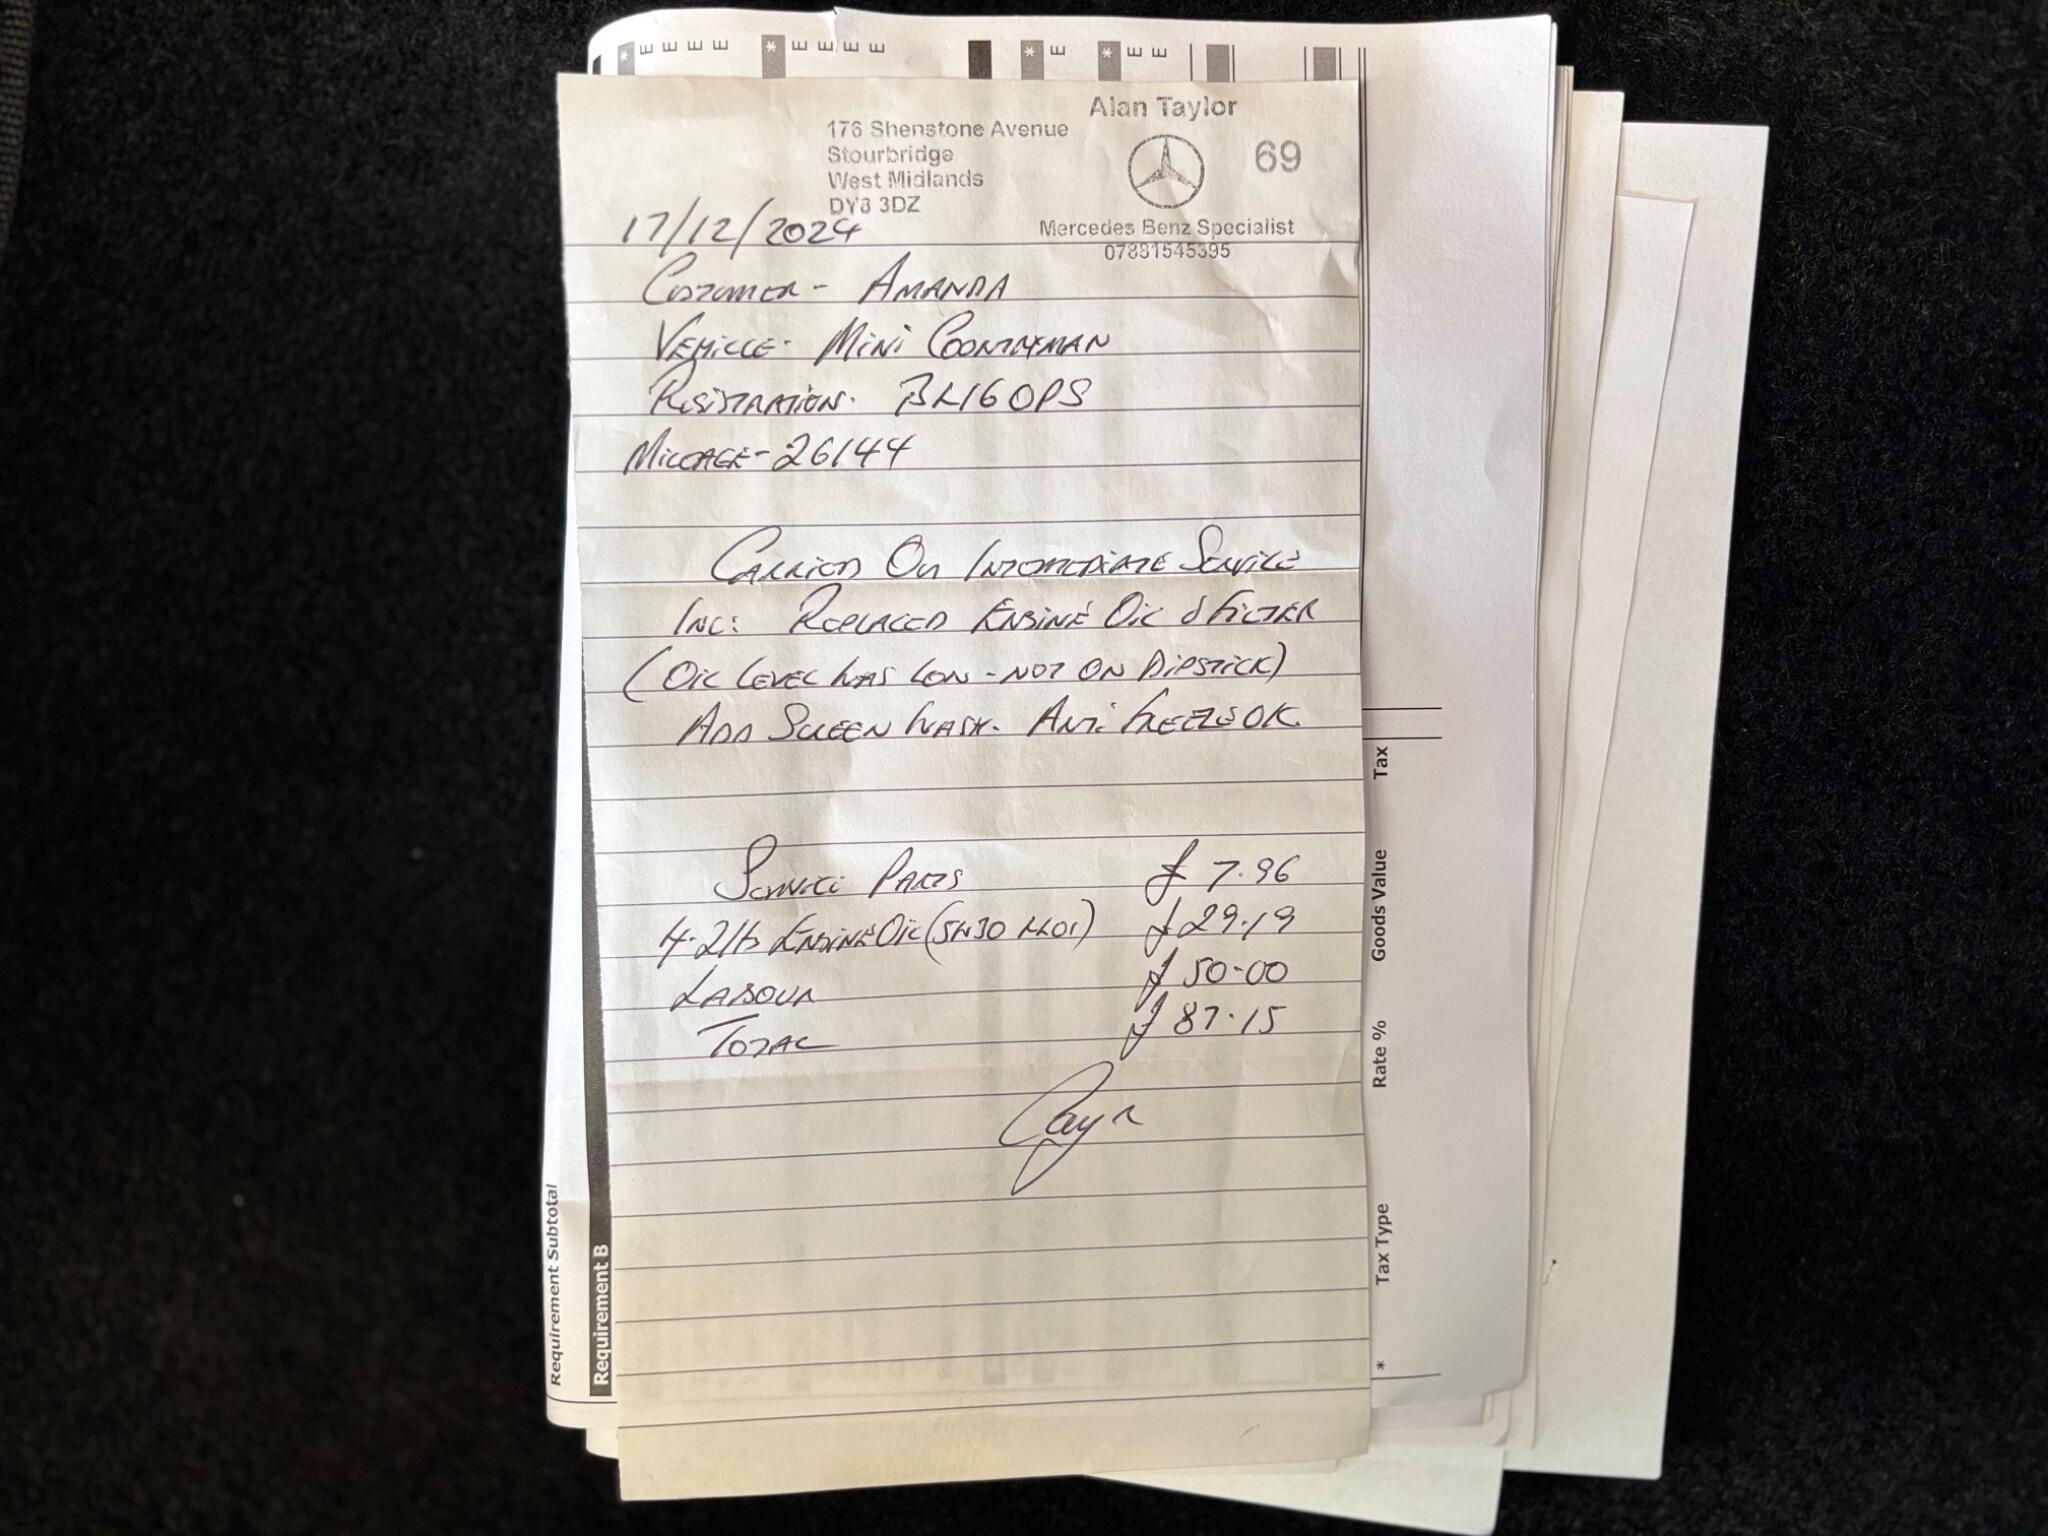 * E E E E * E E E E * E * E E
Alan Taylor
176 Shenstone Avenue
Stourbridge
West Midlands
DY8 3DZ
69
Mercedes Benz Specialist
07881545395
17/12/2024
CUSTOMER - AMANDA
VEHICLE - MINI COUNTRYMAN
REGISTRATION - BL16 OPS
MILEAGE - 26144
CARRIED OUT INTERMEDIATE SERVICE
INC: REPLACED ENGINE OIL & FILTER
(OIL LEVEL WAS LOW - NOT ON DIPSTICK)
ADD SCREEN WASH. ANTI FREEZE OK
SERVICE PARTS £ 7.96
4.2 lts ENGINE OIL (5W30 LL01) £ 29.19
LABOUR £ 50.00
TOTAL £ 87.15
Requirement Subtotal
Requirement B
* Tax Type Rate % Goods Value Tax